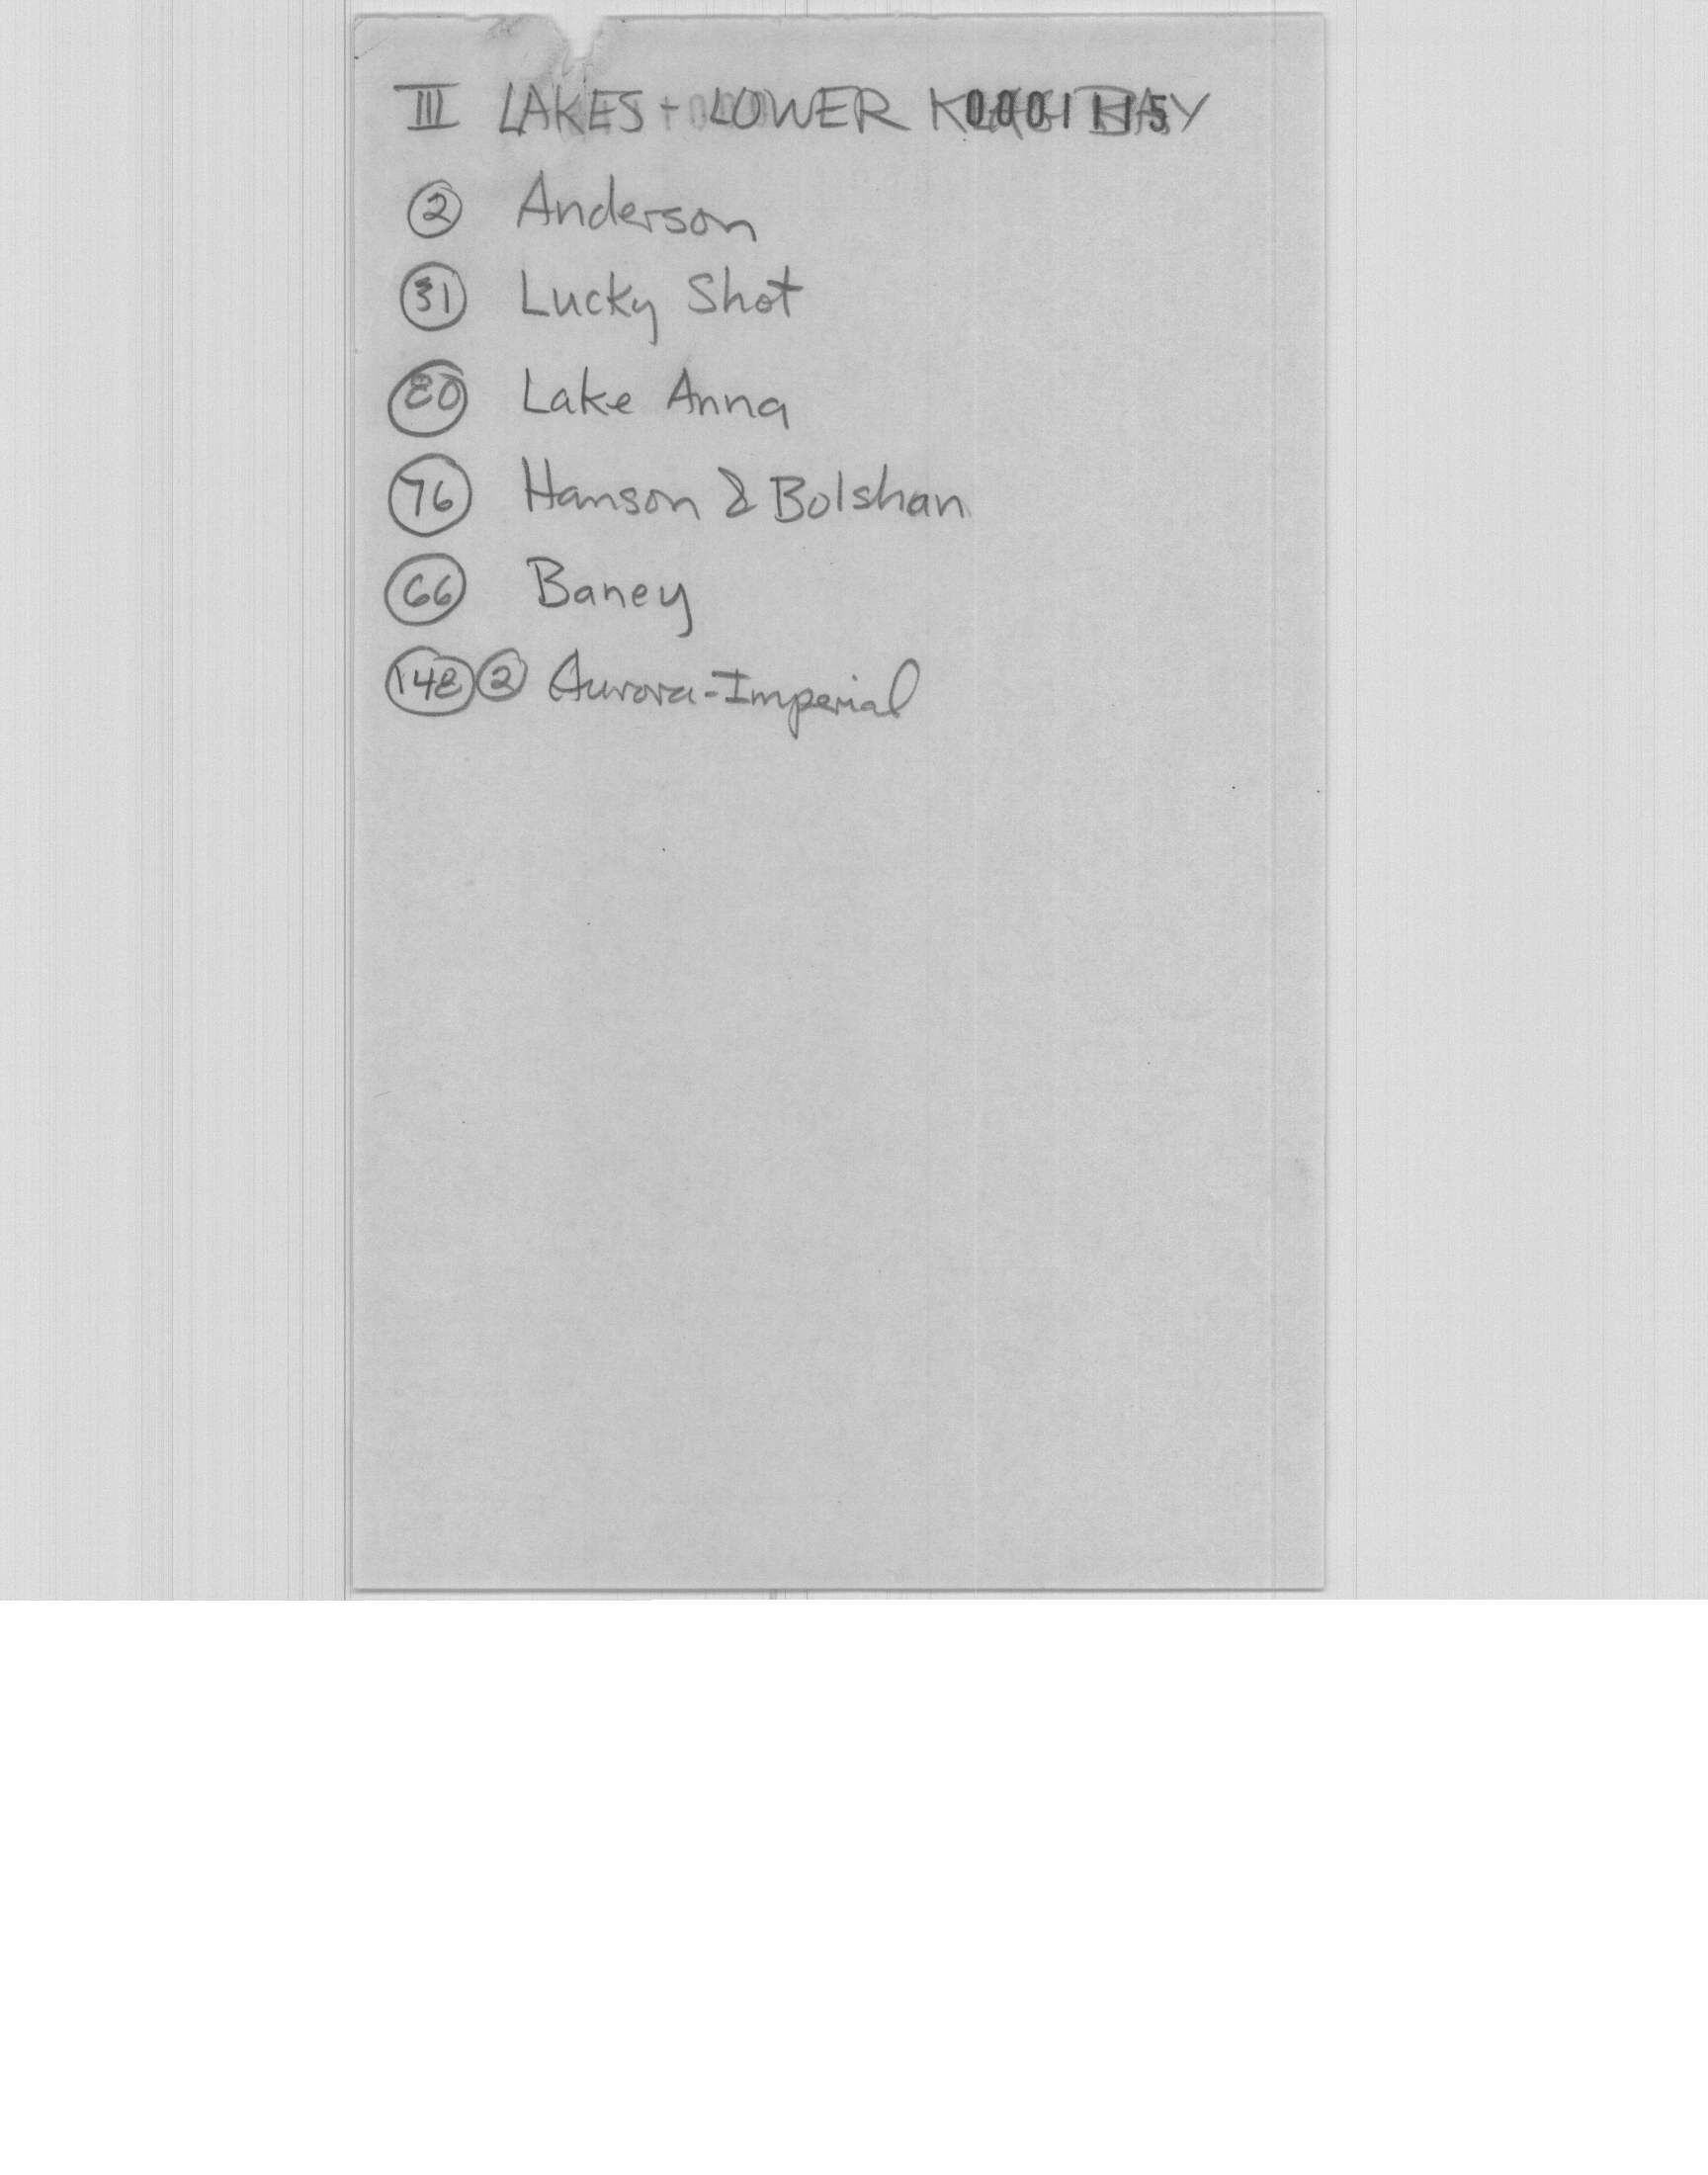 III LAKES + LOWER KLAG BAY
0001115
② Anderson
㉛ Lucky Shot
80 Lake Anna
76 Hanson & Bolshan
66 Baney
148 ② Aurora-Imperial